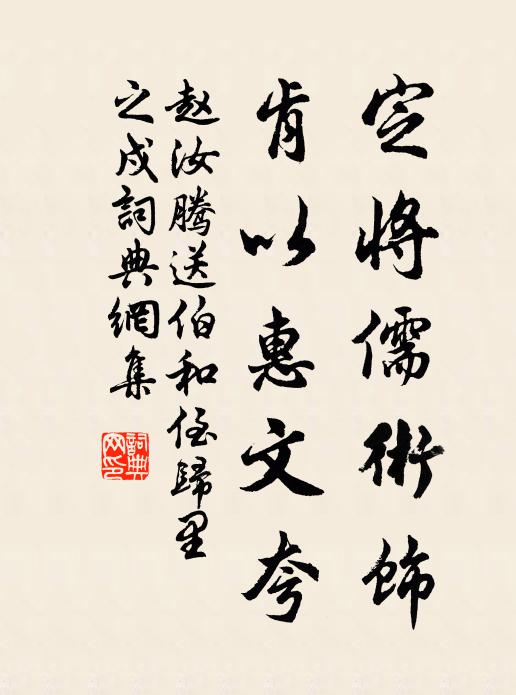 定將儒術飾
肯以惠文夸
趙汝騰送伯和侄歸里
之戍詞典網集
詞典網印